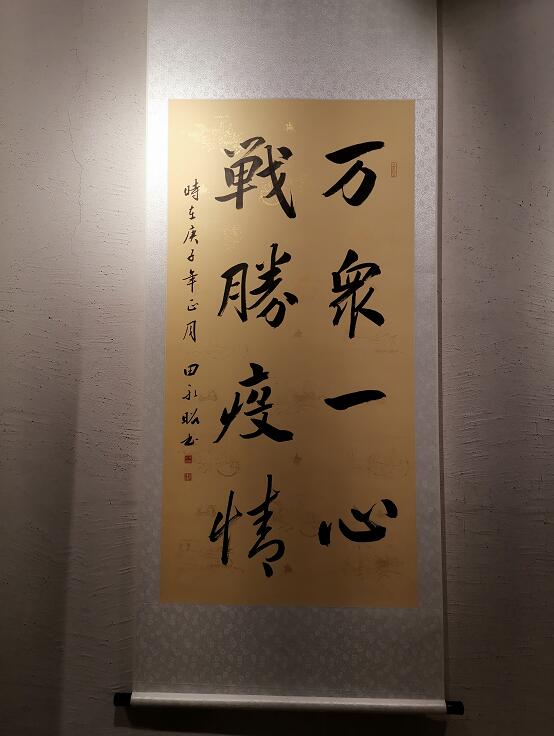 万衆一心
戦勝疫情
時在庚子年正月 田永昭书